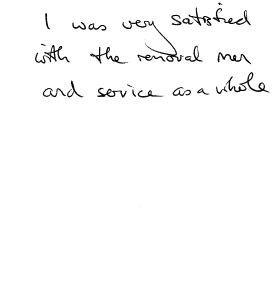 I was very satisfied
with the removal men
and service as a whole